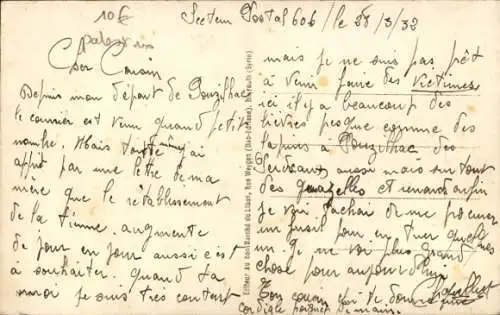 10€
Secteur Postal 606 / le 28/3/32
Cher Cousin
Depuis mon départ de Pouzilhac
le courrier est venu quand petit
nombre. Mais toute même j'ai
appris par une lettre de ma
mère que le rétablissement
de la tienne augmente
de jour en jour aussi c'est
à souhaiter quand ta
moi je suis très content
mais je ne suis pas prêt
à venir faire des victimes
ici il y a beaucoup des
lièvres presque comme des
lapins à Pouzilhac des
aussi mais surtout
des gazelles et renards enfin
je vais tâcher de me procurer
un fusil pour en tuer quelques
un. Je ne vois plus grand
chose pour aujourd'hui
Ton cousin qui te donne une
cordiale poignet de main.
Editeur du Bon Marché du Liban, Rue Weygand, Beyrouth (Syrie)